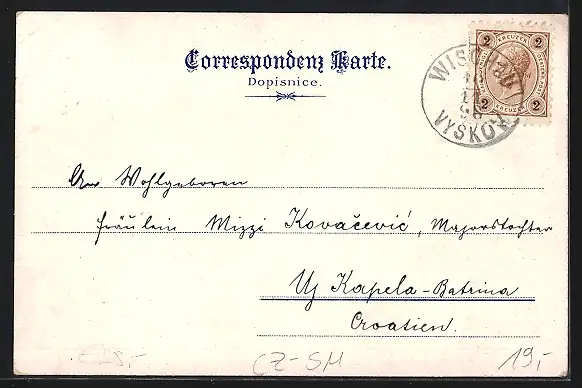 Correspondenz Karte.
Dopisnice.
2 KREUZER 2
WISCHAU
VYŠKOV
2 KREUZER 2
Euer Wohlgeboren
Fräulein Mizzi Kovačević, Majorstochter
Uj Kapela-Batrina
Croatien.
CZ-SM
19,-